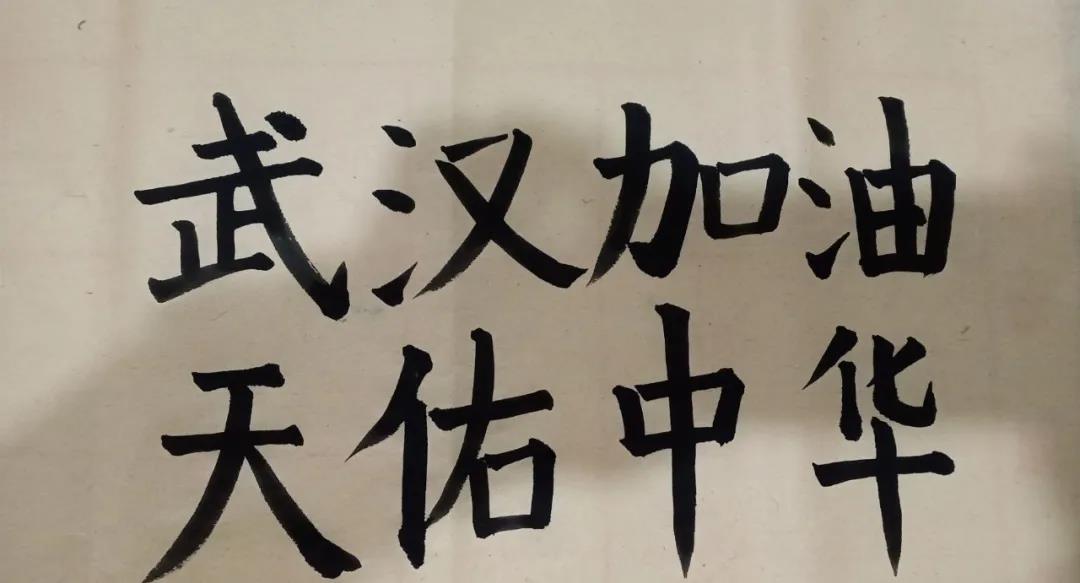 武汉加油
天佑中华